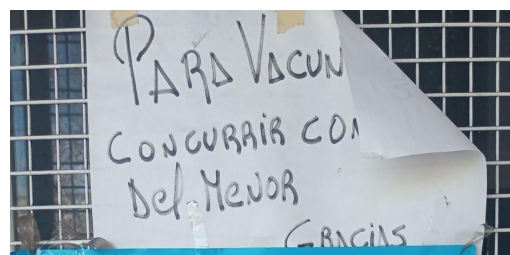 PARA VACUN
CONCURRIR CON
Del MENOR
GRACIAS